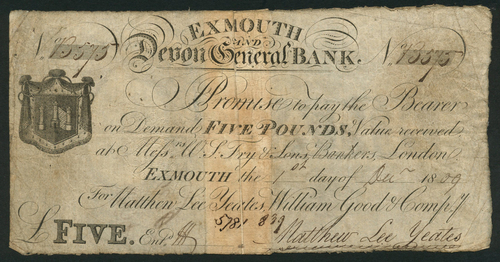 EXMOUTH
AND
No. 73575 Devon General BANK. No. 73575
I Promise to pay the Bearer
on Demand FIVE POUNDS, Value received
at Messrs. W. S. Fry & Sons, Bankers, London.
EXMOUTH the 1st day of Decr 1809
For Matthew Lee Yeates, William Good & Compy
5781 839
£ FIVE. Entd. Matthew Lee Yeates